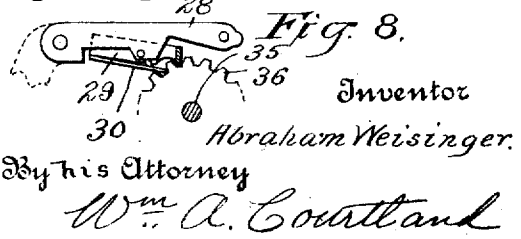 28
Fig. 8.
35
36
29
30
Inventor
Abraham Weisinger.
By his Attorney
Wm. A. Courtland